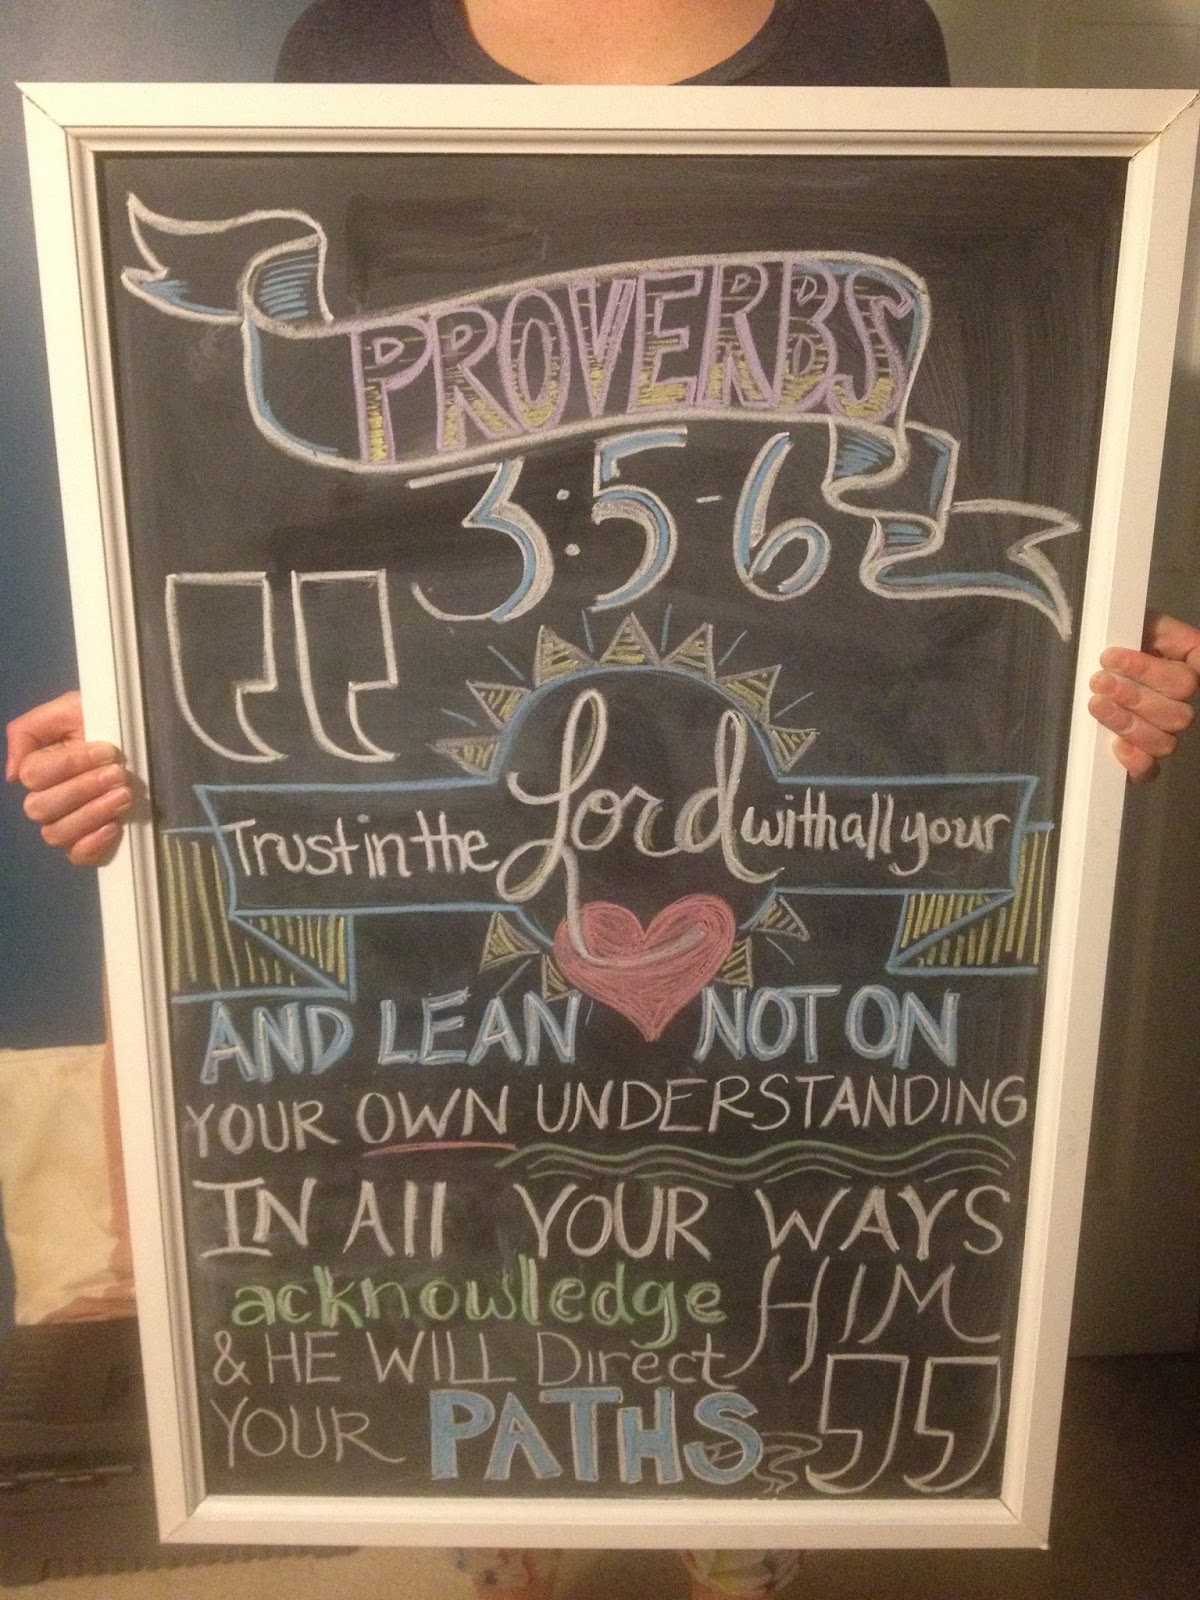 PROVERBS
3:5-6
“Trust in the Lord with all your
AND LEAN NOT ON
YOUR OWN UNDERSTANDING
IN All YOUR WAYS
acknowledge HIM
& HE WILL Direct
YOUR PATHS”